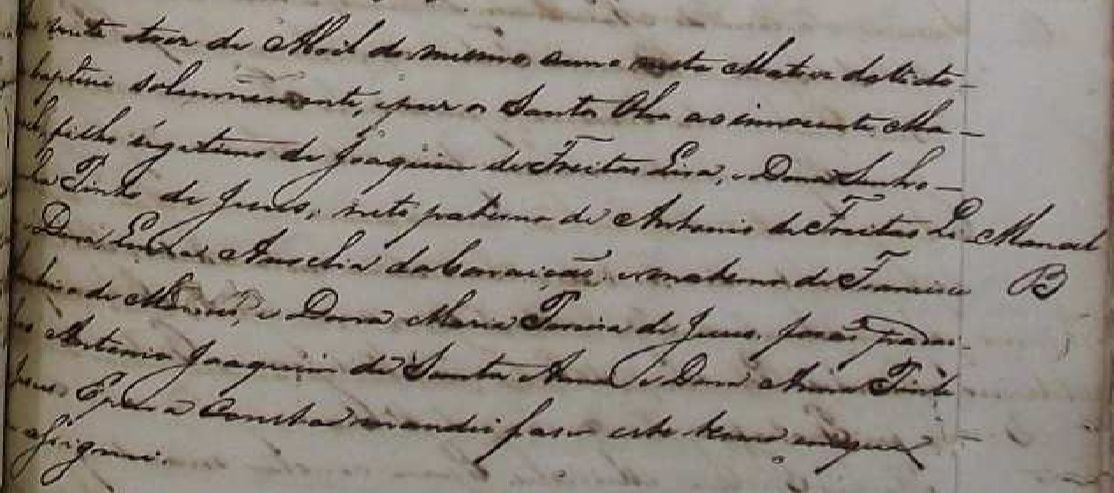 vinte tres de Abril do mesmo anno nesta Matriz de
baptisei solemnemente, e pus os Santos Oleos ao innocente Ma-
noel, filho legitimo de Joaquim de Freitas Lira, e Dona Senho-
Pinto de Jesus, neto paterno de Antonio de Freitas Li-
Dona Anna da Conceição, e materno de Francisco
de e Dona Maria Pereira de Jesus. forão Padri-
nhos Antonio Joaquim de Santa Anna e Dona Anna Pinto
Jesus. E para Constar mandei faser este termo em que
assignei.
Manoel
B